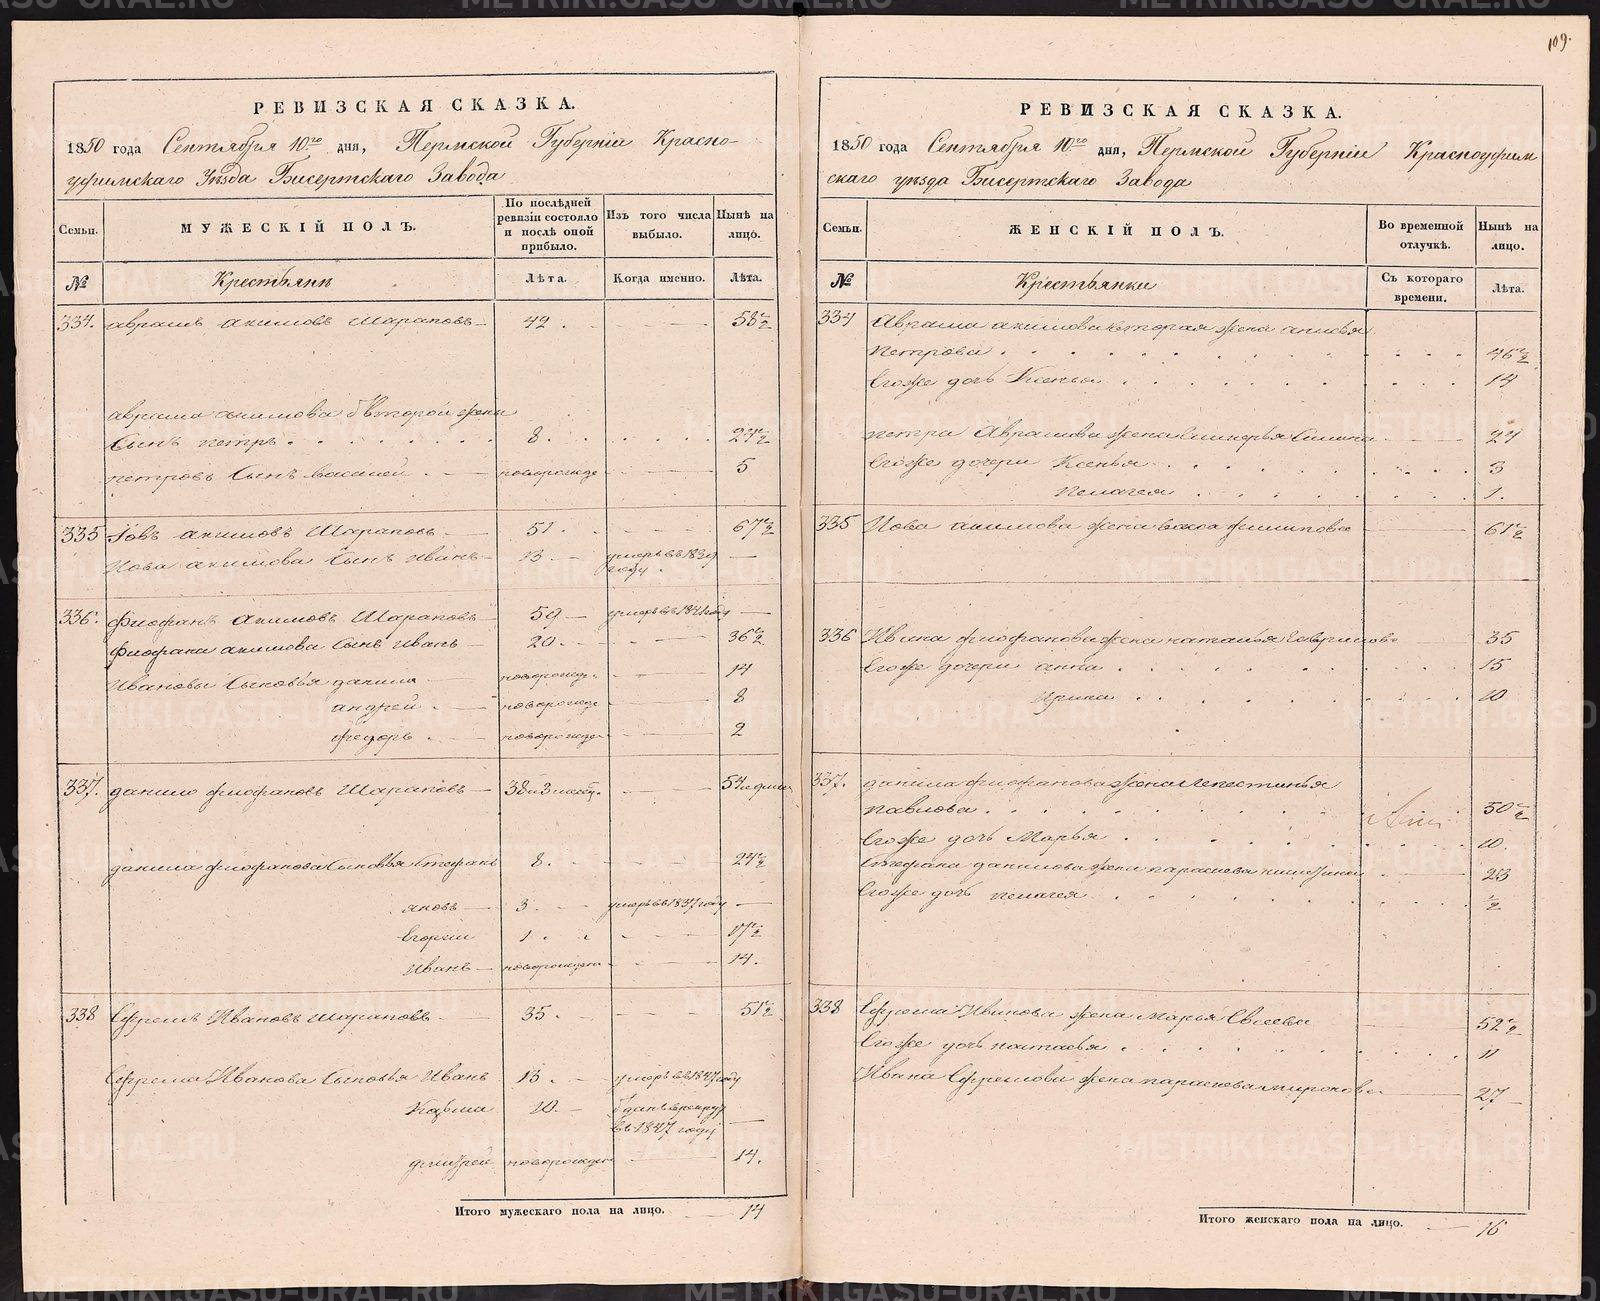 109.
РЕВИЗСКАЯ СКАЗКА.
1850 года Сентября 10го дня, Пермской Губерніи Красно-
уфимскаго Уѣзда Бисертскаго Завода
Семьи.
МУЖЕСКІЙ ПОЛЪ.
По послѣдней ревизіи состояло и послѣ оной прибыло.
Изъ того числа выбыло.
Нынѣ на лицо.
№
Крестьянѣ
Лѣта.
Когда именно.
Лѣта.
334. аврамъ акимовъ Шараповъ 42. 58 ½
аврама акимова второй жены
Сынъ петръ 8. 24 ½
петровъ Сынъ василей новорожде 5
335 Іовъ акимовъ Шараповъ 51. 67 ½
Иова акимова Сынъ иванъ 13 умеръ въ 1839
году.
336. фиофанъ акимовъ Шараповъ 59 умеръ въ 1841 году
фиофана акимова Сынъ иванъ 20. 36 ½
ивановы Сыновья данила новорожде. 14
андрей новорожде 8
федоръ новорожде 2
337. данило фиофановъ Шараповъ 38 и 3 месец. 54
данила фиофанова Сыновья стефанъ 8. 24 ½
яковъ 3. умеръ въ 1837 году
Егоръ 1. 17 ½
иванъ новорожден 14.
338 Ефремъ Ивановъ Шараповъ 35. 51 ½
Ефрема Иванова Сыновья Иванъ 13. умеръ въ 1847 году
Карма 10. Зданъ в рекруу
въ 1847 году
дмитрей новорожден 14.
Итого мужескаго пола на лицо. 14
РЕВИЗСКАЯ СКАЗКА.
1850 года Сентября 10го дня, Пермской Губерніи Красноуфим
скаго уѣзда Бисертскаго Завода
Семьи.
ЖЕНСКІЙ ПОЛЪ.
Во временной отлучкѣ.
Нынѣ на лицо.
№
Крестьянки
Съ котораго времени.
Лѣта.
334 Аврама акимова вторая жена
петрова 46 ½
Егоже дочь Ксенья 14
петра Аврамова жена 24
Егоже дочери Ксенья 3
Пелагея 1.
335 Иова акимова жена филипова 61 ½
336 Ивана фиофанова жена наталья гаврилова 35
Егоже дочери анна 15
Ирина 10
337. данила фиофанова жена
павлова 50 ½
Егоже дочь Марья 10.
Стефана данилова жена парасковья 23
Егоже дочь пелагея ½
338 Ефрема Иванова жена Марья Евсеева 52 ½
Егоже дочь настасья 11
Ивана Ефремова жена парасковья миронова 27
Итого женскаго пола на лицо. 16
METRIKI.GASO-URAL.RU